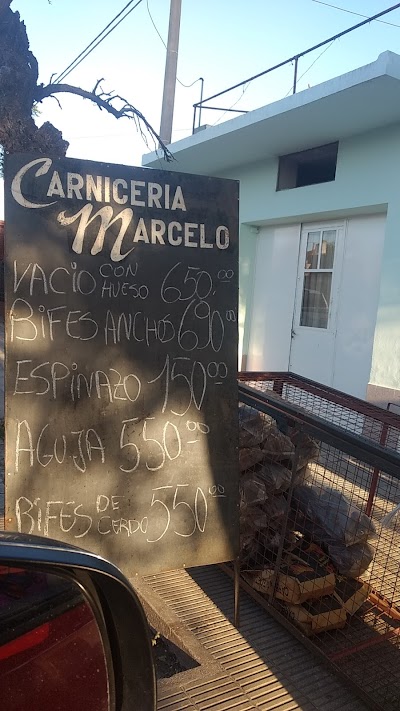 CARNICERIA
MARCELO
VACIO CON HUESO 650,00
BIFES ANCHOS 690,00
ESPINAZO 150,00
AGUJA 550,00
BIFES DE CERDO 550,00